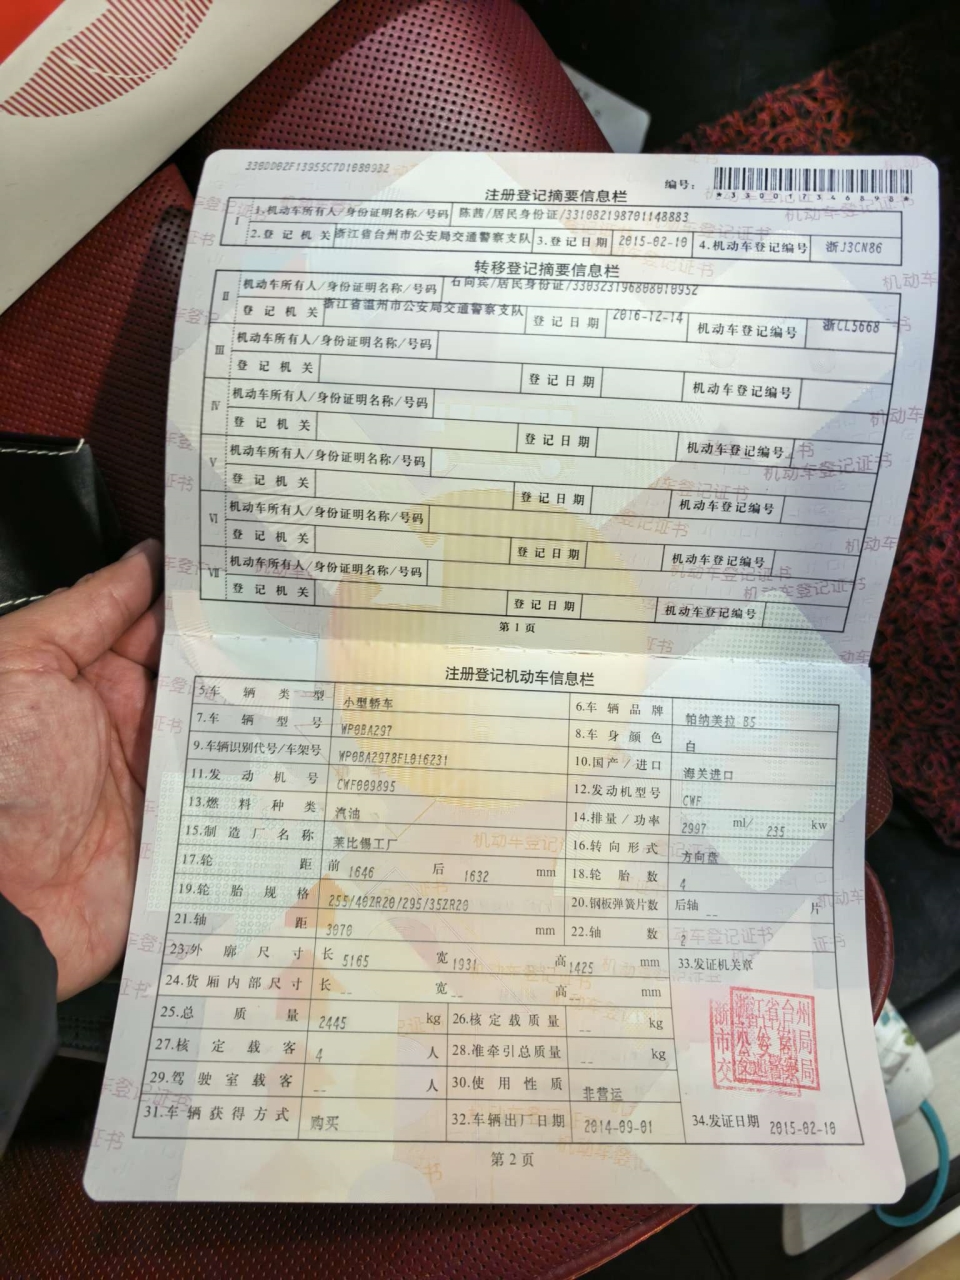 330D002F13955C7D1088D9B2
编号：
*330017346898*
注册登记摘要信息栏
Ⅰ 1.机动车所有人/身份证明名称/号码 陈茜/居民身份证/331082198701148883
2.登记机关 浙江省台州市公安局交通警察支队 3.登记日期 2015-02-10 4.机动车登记编号 浙J3CN86
转移登记摘要信息栏
Ⅱ 机动车所有人/身份证明名称/号码 石向宾/居民身份证/330323196808010952
登记机关 浙江省温州市公安局交通警察支队 登记日期 2016-12-14 机动车登记编号 浙CL5668
Ⅲ 机动车所有人/身份证明名称/号码
登记机关 登记日期 机动车登记编号
Ⅳ 机动车所有人/身份证明名称/号码
登记机关 登记日期 机动车登记编号
Ⅴ 机动车所有人/身份证明名称/号码
登记机关 登记日期 机动车登记编号
Ⅵ 机动车所有人/身份证明名称/号码
登记机关 登记日期 机动车登记编号
Ⅶ 机动车所有人/身份证明名称/号码
登记机关 登记日期 机动车登记编号
第1页
注册登记机动车信息栏
5.车辆类型 小型轿车 6.车辆品牌 帕纳美拉 BS
7.车辆型号 WP0BA297 8.车身颜色 白
9.车辆识别代号/车架号 WP0BA297BFL016231 10.国产/进口 海关进口
11.发动机号 CWF009895 12.发动机型号 CWF
13.燃料种类 汽油 14.排量/功率 2997 ml/ 235 kw
15.制造厂名称 莱比锡工厂 16.转向形式 方向盘
17.轮距 前 1646 后 1632 mm 18.轮胎数 4
19.轮胎规格 255/40ZR20/295/35ZR20 20.钢板弹簧片数 后轴 -- 片
21.轴距 3070 mm 22.轴数 2
23.外廓尺寸 长 5165 宽 1931 高 1425 mm 33.发证机关章
24.货厢内部尺寸 长 -- 宽 -- 高 -- mm
25.总质量 2445 kg 26.核定载质量 -- kg
27.核定载客 4 人 28.准牵引总质量 -- kg
29.驾驶室载客 -- 人 30.使用性质 非营运
31.车辆获得方式 购买 32.车辆出厂日期 2014-09-01 34.发证日期 2015-02-10
第2页